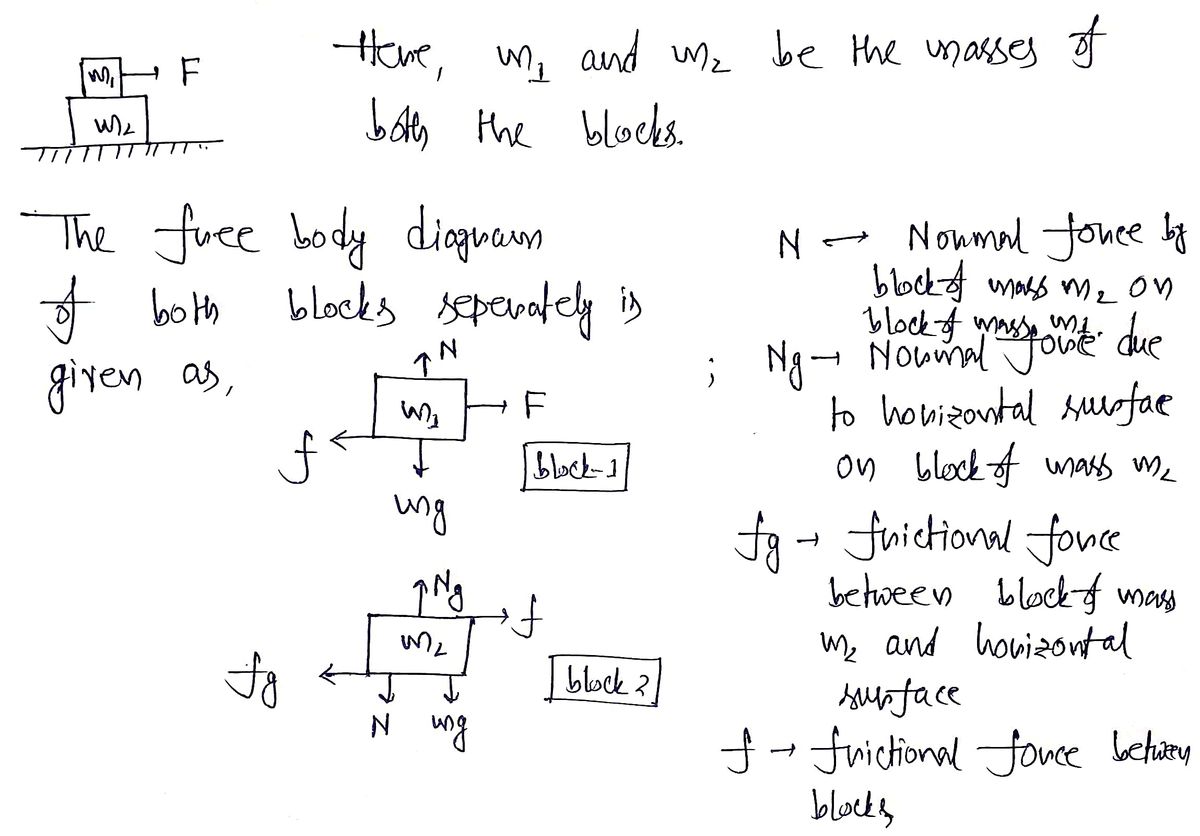 m₁ → F
m₂
Here, m₁ and m₂ be the masses of
both the blocks.
The free body diagram
of both blocks seperately is
given as,
N
m₁ → F
f
mg
block-1
Ng
f
m₂
fg
N mg
block 2
N → Normal force by
block of mass m₂ on
block of mass m₁.
; Ng → Normal force due
to horizontal surface
on block of mass m₂
fg → frictional force
between block of mass
m₂ and horizontal
surface
f → frictional force between
blocks